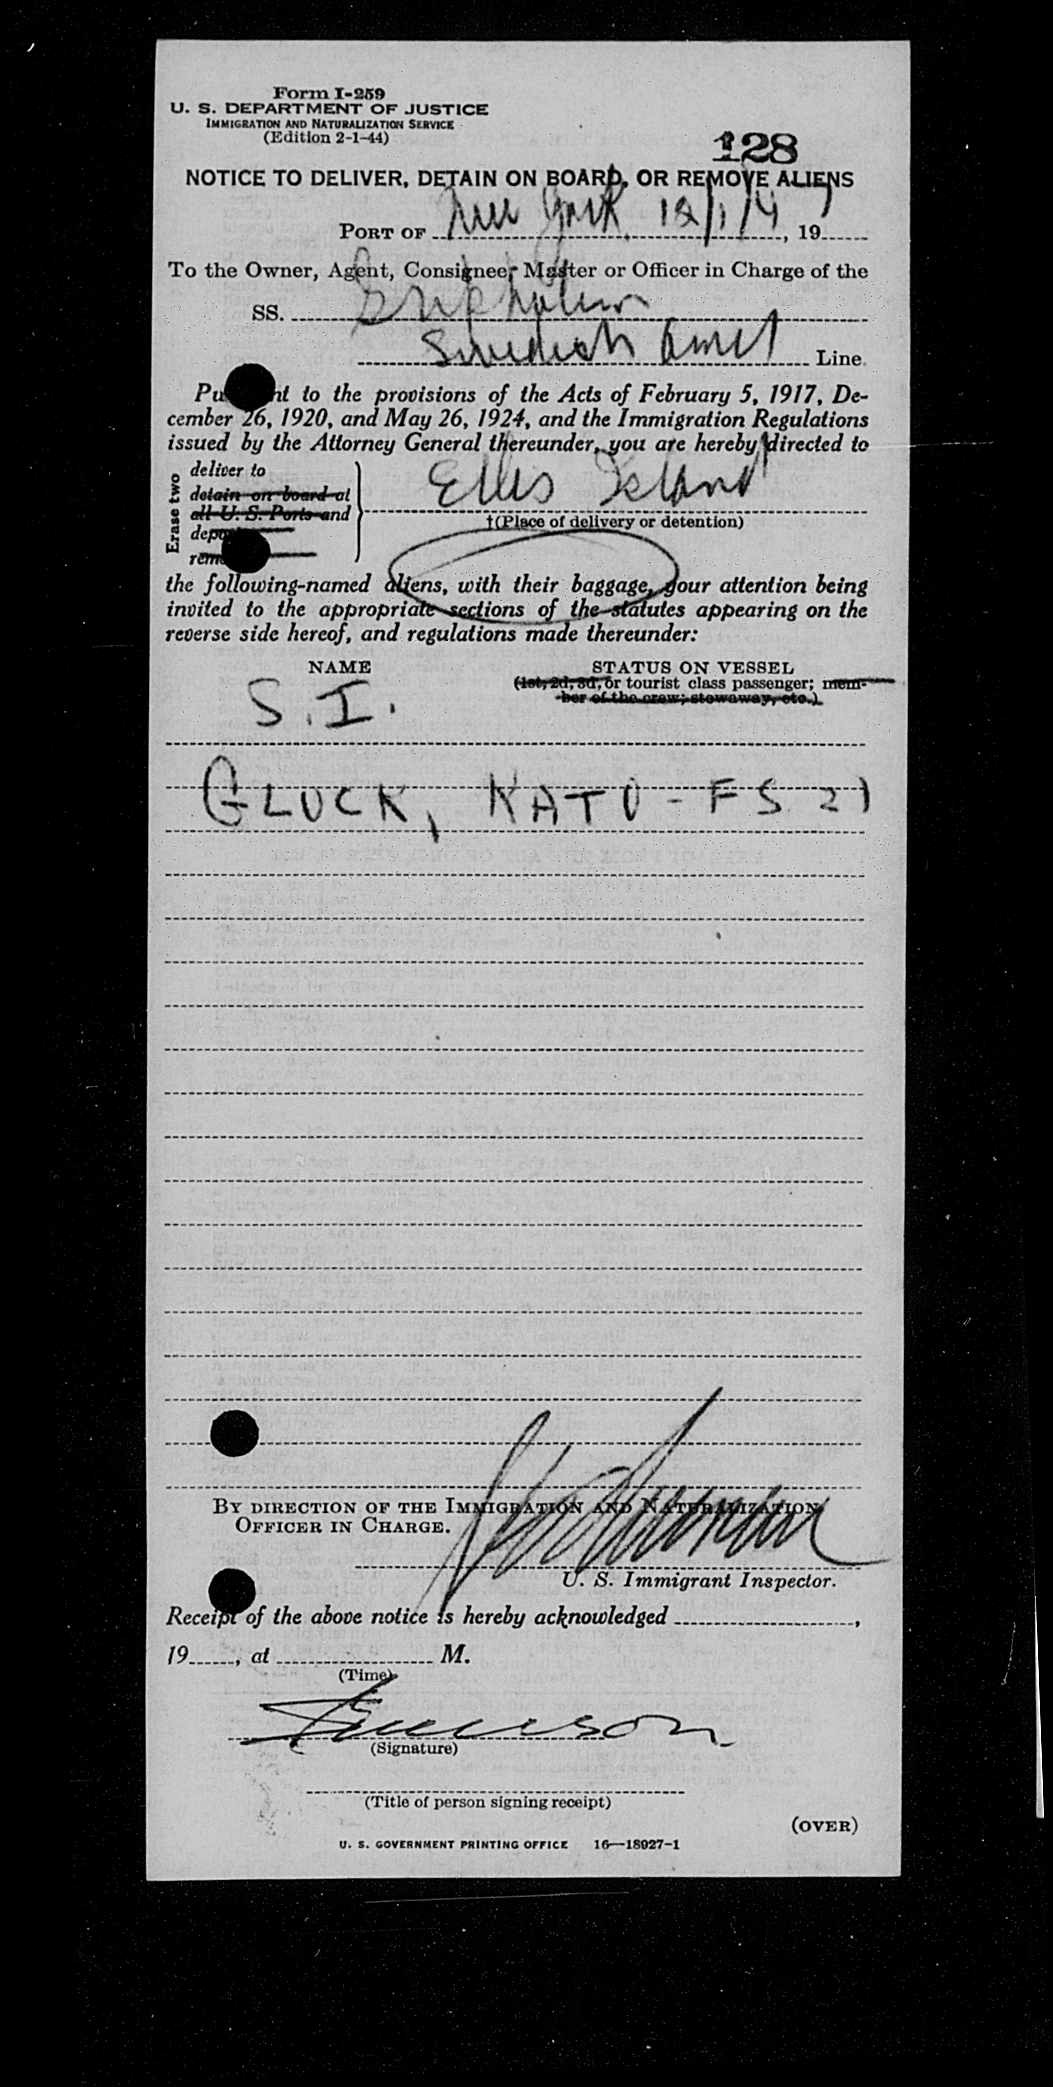 Form I-259
U. S. DEPARTMENT OF JUSTICE
IMMIGRATION AND NATURALIZATION SERVICE
(Edition 2-1-44)
128
NOTICE TO DELIVER, DETAIN ON BOARD, OR REMOVE ALIENS
PORT OF New York, 12/1/47, 19
To the Owner, Agent, Consignee, Master or Officer in Charge of the
SS. Gripsholm
Swedish Amer Line
Pu nt to the provisions of the Acts of February 5, 1917, De-
cember 26, 1920, and May 26, 1924, and the Immigration Regulations
issued by the Attorney General thereunder, you are hereby directed to
Erase two
deliver to
detain on board at
all U. S. Ports and
depo
rem
Ellis Island
†(Place of delivery or detention)
the following-named aliens, with their baggage, your attention being
invited to the appropriate sections of the statutes appearing on the
reverse side hereof, and regulations made thereunder:
NAME STATUS ON VESSEL
(1st, 2d, 3d, or tourist class passenger; mem-
ber of the crew; stowaway, etc.)
S. I.
GLUCK, KATO - FS 21
BY DIRECTION OF THE IMMIGRATION AND NATURALIZATION
OFFICER IN CHARGE.
U. S. Immigrant Inspector.
Receipt of the above notice is hereby acknowledged ,
19 , at M.
(Time)
(Signature)
(Title of person signing receipt)
(OVER)
U. S. GOVERNMENT PRINTING OFFICE 16—18927-1